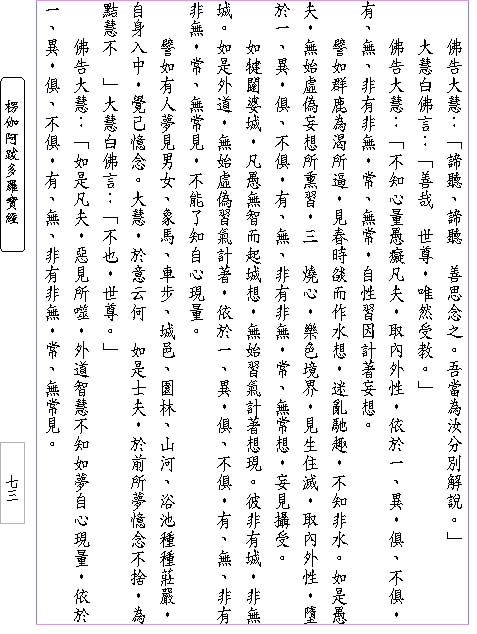 佛告大慧：「諦聽、諦聽　善思念之。吾當為汝分別解說。」
大慧白佛言：「善哉　世尊，唯然受教。」
佛告大慧：「不知心量愚癡凡夫，取內外性，依於一、異，俱、不俱，
有、無、非有非無，常、無常，自性習因計著妄想。
譬如群鹿為渴所逼，見春時燄而作水想，迷亂馳趣，不知非水。如是愚
夫，無始虛偽妄想所熏習，三　燒心，樂色境界，見生住滅，取內外性，墮
於一、異，俱、不俱，有、無、非有非無，常、無常想，妄見攝受。
如犍闥婆城，凡愚無智而起城想，無始習氣計著想現。彼非有城，非無
城。如是外道，無始虛偽習氣計著，依於一、異，俱、不俱，有、無、非有
非無，常、無常見，不能了知自心現量。
譬如有人夢見男女、象馬、車步、城邑、園林、山河、浴池種種莊嚴，
自身入中，覺已憶念。大慧，於意云何　如是士夫，於前所夢憶念不捨，為
黠慧不　」大慧白佛言：「不也，世尊。」
佛告大慧：「如是凡夫，惡見所噬，外道智慧不知如夢自心現量，依於
一、異，俱、不俱，有、無、非有非無，常、無常見。
楞伽阿跋多羅寶經
七三